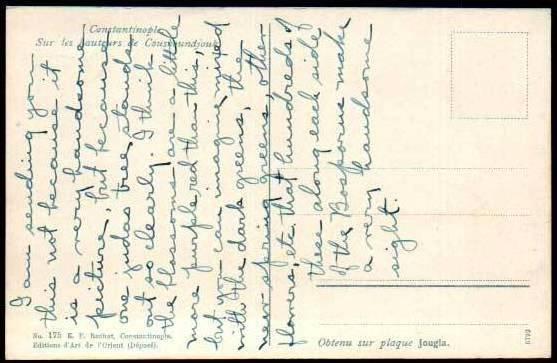 Constantinople
Sur les hauteurs de Couscoundjouk
I am sending you
this not because it
is a very handsome
picture, but because
one judas tree stands
out so clearly. I think
the blossoms are a little
more purple red than this,
but you can imagine, mixed
with the dark greens, the
new spring greens, other
flowers, etc, that hundreds of
these along each side
of the Bosporus make
a very handsome
sight.
No. 175 E. F. Rochat, Constantinople.
Editions d'Art de l'Orient (Déposé).
Obtenu sur plaque Jougla.